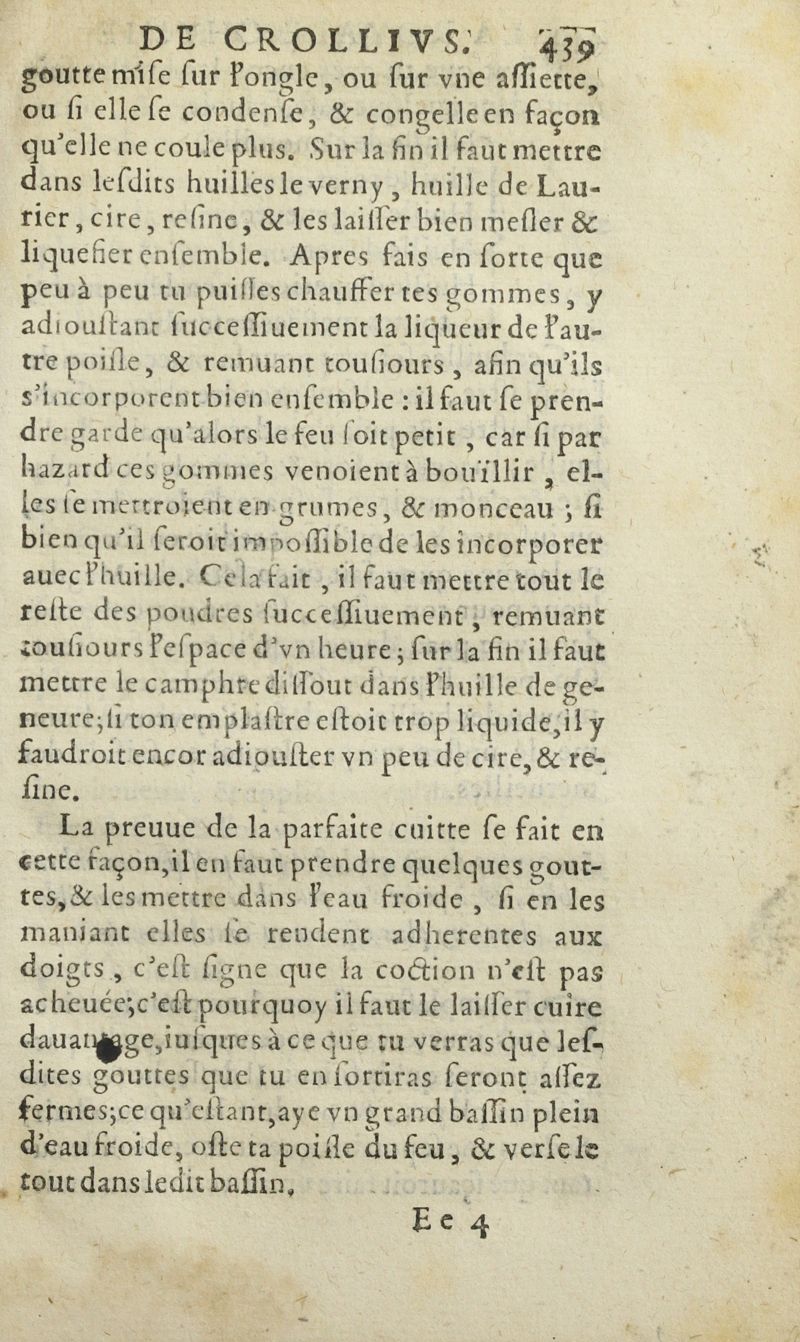 DE CROLLIVS. 439
goutte miſe ſur l'ongle, ou ſur vne aſſiette,
ou ſi elle ſe condenſe, & congelle en façon
qu'elle ne coule plus. Sur la fin il faut mettre
dans leſdits huilles le verny, huille de Lau-
rier, cire, reſine, & les laiſſer bien meſler &
liquefier enſemble. Apres fais en ſorte que
peu à peu tu puiſſes chauffer tes gommes, y
adiouſtant ſucceſſiuement la liqueur de l'au-
tre poiſle, & remuant touſiours, afin qu'ils
s'incorporent bien enſemble : il faut ſe pren-
dre garde qu'alors le feu ſoit petit, car ſi par
hazard ces gommes venoient à bouïllir, el-
les ſe mettroient en grumes, & monceau ; ſi
bien qu'il ſeroit impoſſible de les incorporer
auec l'huille. Cela fait, il faut mettre tout le
reſte des poudres ſucceſſiuement, remuant
touſiours l'eſpace d'vn heure ; ſur la fin il faut
mettre le camphre diſſout dans l'huille de ge-
neure; ſi ton emplaſtre eſtoit trop liquide, il y
faudroit encor adiouſter vn peu de cire, & re-
ſine.
La preuue de la parfaite cuitte ſe fait en
cette façon, il en faut prendre quelques gout-
tes, & les mettre dans l'eau froide, ſi en les
maniant elles ſe rendent adherentes aux
doigts, c'eſt ſigne que la coction n'eſt pas
acheuée; c'eſt pourquoy il faut le laiſſer cuire
dauantage, iuſques à ce que tu verras que leſ-
dites gouttes que tu en ſortiras ſeront aſſez
fermes; ce qu'eſtant, aye vn grand baſſin plein
d'eau froide, oſte ta poiſle du feu, & verſe le
tout dans ledit baſſin,
Ee 4